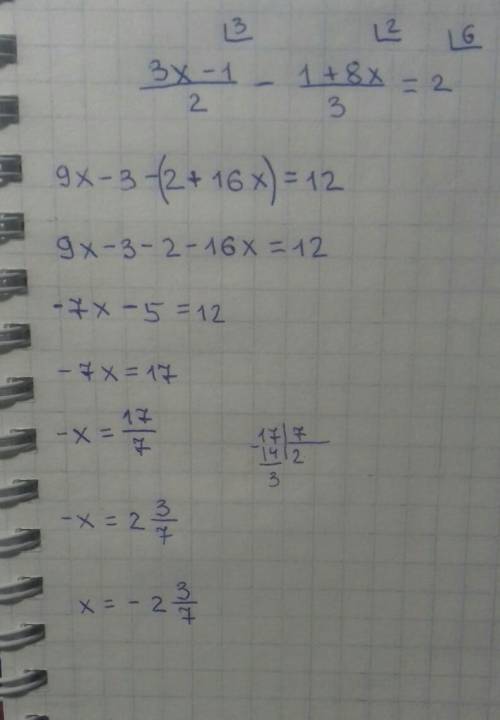 3 2 6
3x - 1 / 2 - 1 + 8x / 3 = 2
9x - 3 - (2 + 16x) = 12
9x - 3 - 2 - 16x = 12
-7x - 5 = 12
-7x = 17
-x = 17/7
-17 | 7
14 | 2
3
-x = 2 3/7
x = -2 3/7